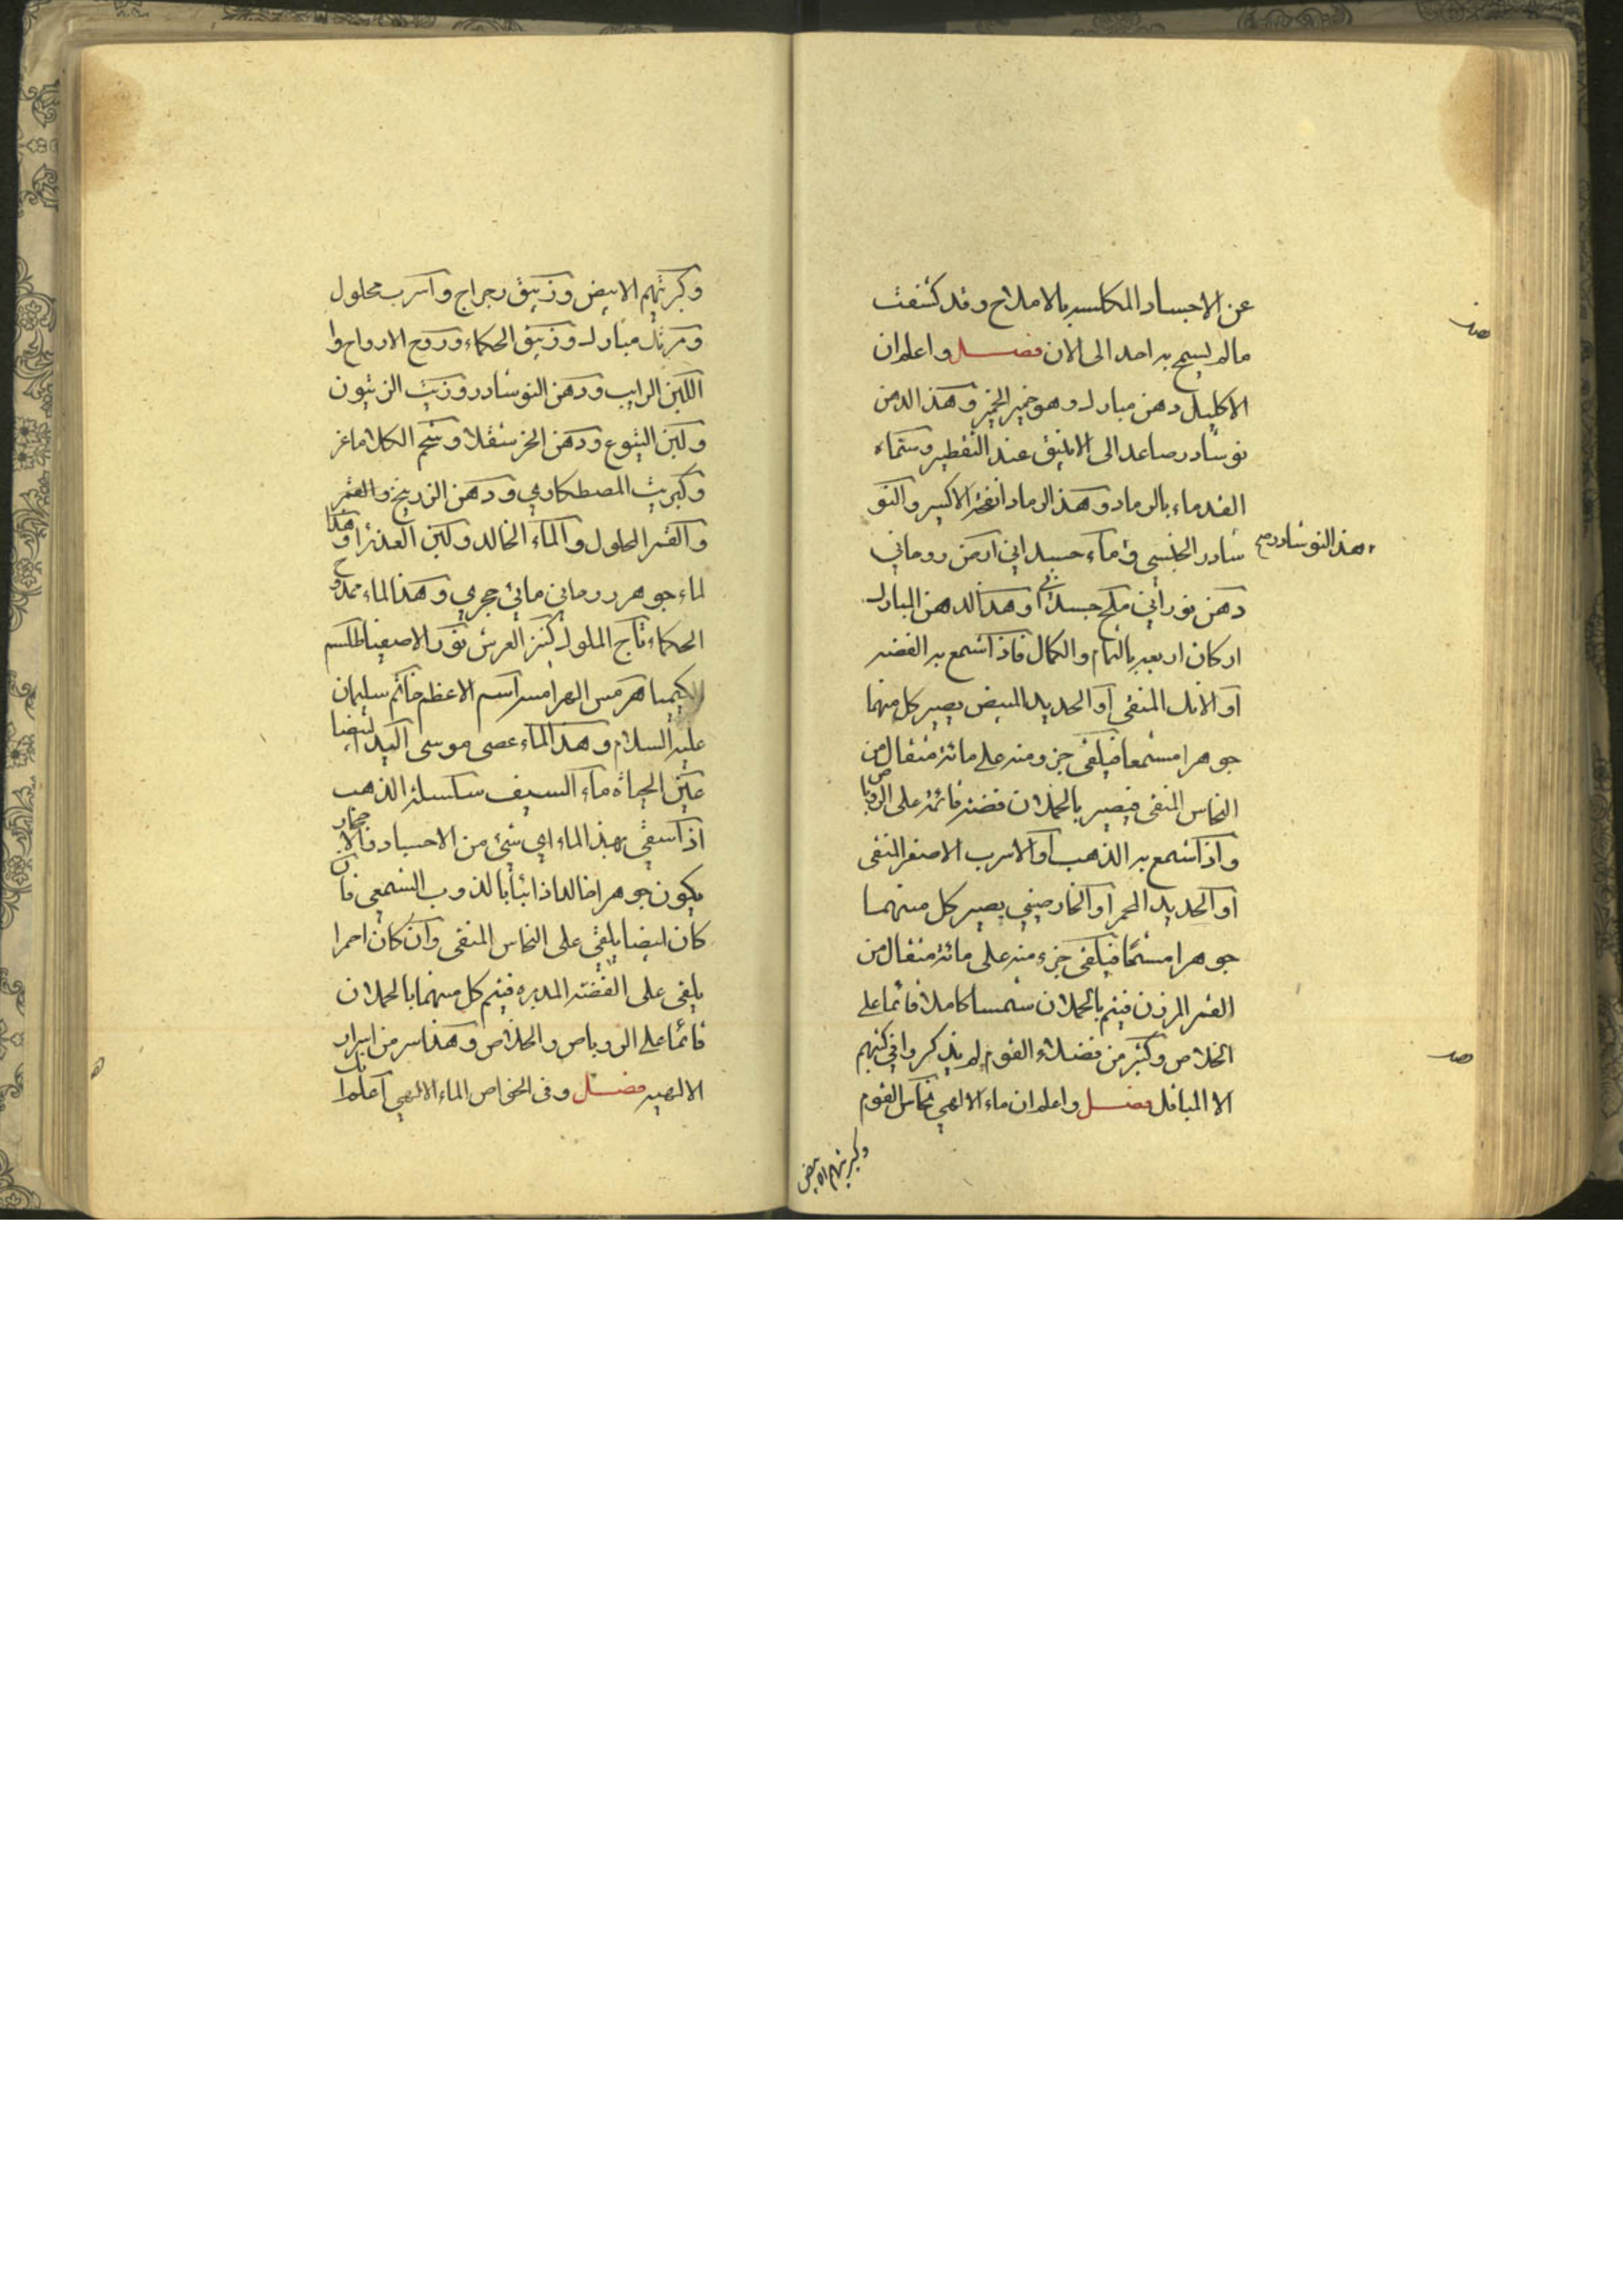 عن الاجساد المكلسه بالاملاح وقد كشفت
مالم يسمح به احد الى الان فصل واعلم ان
الاكليل دهن مبارك وهو خمير الخمير وهذا الدهن
نوشادر صاعد الى الانبيق عند التقطير وسماه
القدماء بالرماد وهذا الرماد انفحة الاكسير والنو
شادر الجنسى وماء جسداني اركن روحاني
هذا النوشادر صح
دهن نوراني ملح جسداني وهذا الدهن المبارك
اركان اربعه بالتمام والكمال فاذا شمع به الفضه
او الانك المنقى او الحديد المبيض يصير كل منهما
جوهرا مشمعا فيلقى جزو منه على مائة مثقال من
النحاس المنقى فيصير بالحملان فضة قائمة على الروباص
واذا شمع به الذهب او الاسرب الاصفر المنقى
او الحديد المحمر او الخارصيني يصير كل منهما
جوهرا مشمعا فيلقى جزء منه على مائة مثقال من
القمر المرزن فيتم بالحملان شمسا كاملا قائما على
الخلاص وكثير من فضلاء القوم لم يذكروا في كتبهم
الا المباقل فصل واعلم ان ماء الالهي نحاس القوم
وكبريتهم الابيض
وكبريتهم الابيض وزيبق رجراج واسرب محلول
ومرتك مبارك وزيبق الحكماء وروح الارواح وا
اللبن الرايب ودهن النوشادر وزيت الزيتون
ولبن اليتوع ودهن الخر سقلا وشحم الكلاماغز
وكبريت المصطكاوي ودهن الزرنيخ والقمر
والقمر المحلول والماء الخالد ولبن العذرا وهذا
لماء جوهر روحاني مائي حجري وهذا الماء ممدوح
الحكماء تاج الملوك كنز العرش نور الاصفيا طلسم
الكيميا هرمس الهرامسه اسم الاعظم خاتم سليمان
عليه السلام وهذا الماء عصى موسى اليد البيضا
عين الحياة ماء السيف سلسلة الذهب
اذا سقي بهذا الماء اي شئ من الاجساد والاحجار
يكون جوهرا خالدا ذائبا بالذوب الشمعي فان
كان ابيضا يلقى على النحاس المنقى وان كان احمرا
يلقى على الفضة المدبره فيتم كل منهما بالحملان
قائما على الروباص والخلاص وهذا سر من اسرار
الالهيه فصل وفى الخواص الماء الالهي اعلم ان